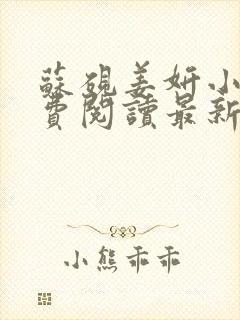 蘇硯姜妍小
費閱讀最新
小熊乖乖